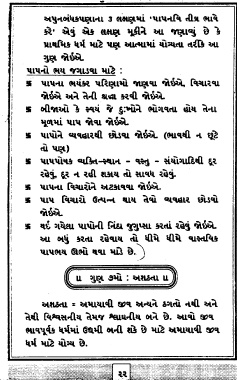 અપુનર્બંધકપણાના ૩ લક્ષણમાં 'પાપનવિ તીવ્ર ભાવે
કરે' એવું એક લક્ષણ મૂકીને આ જણાવ્યું છે કે
પ્રાથમિક ધર્મ માટે પણ આત્મામાં યોગ્યતા તરીકે આ
ગુણ જોઈએ.
પાપનો ભય જગાડવા માટે :
પાપના ભયંકર પરિણામો જાણવા જોઈએ, વિચારવા
જોઈએ અને તેની શ્રદ્ધા કરવી જોઈએ.
બીજાઓ કે સ્વયં જે દુઃખોને ભોગવતા હોય તેના
મૂળમાં પાપ જોવા જોઈએ.
પાપોને વ્યવહારથી છોડવા જોઈએ. (ભાવથી ન છૂટે
તો પણ)
પાપપોષક વ્યક્તિ-સ્થાન - વસ્તુ - સંયોગાદિથી દૂર
રહેવું, દૂર ન રહી શકાય તો સાવધ રહેવું.
પાપના વિચારોને અટકાવવા જોઈએ.
પાપ વિચારો ઉત્પન્ન થાય તેવો વ્યવહાર છોડવો
જોઈએ.
થઈ ગયેલા પાપોની નિંદા જુગુપ્સા કરતાં રહેવું જોઈએ.
આ બધું કરતા રહેવાય તો ધીમે ધીમે વાસ્તવિક
પાપભય ઊભો થવા માંડે છે.
॥ ગુણ ૭મો : અશઠતા ॥
અશઠતા = અમાયાવી જીવ અન્યને ઠગતો નથી અને
તેથી વિશ્વસનીય તેમજ શ્લાઘનીય બને છે. આવો જીવ
ભાવપૂર્વક ધર્મમાં ઉદ્યમી બની શકે છે માટે અમાયાવી જીવ
ધર્મ માટે યોગ્ય છે.
૨૨